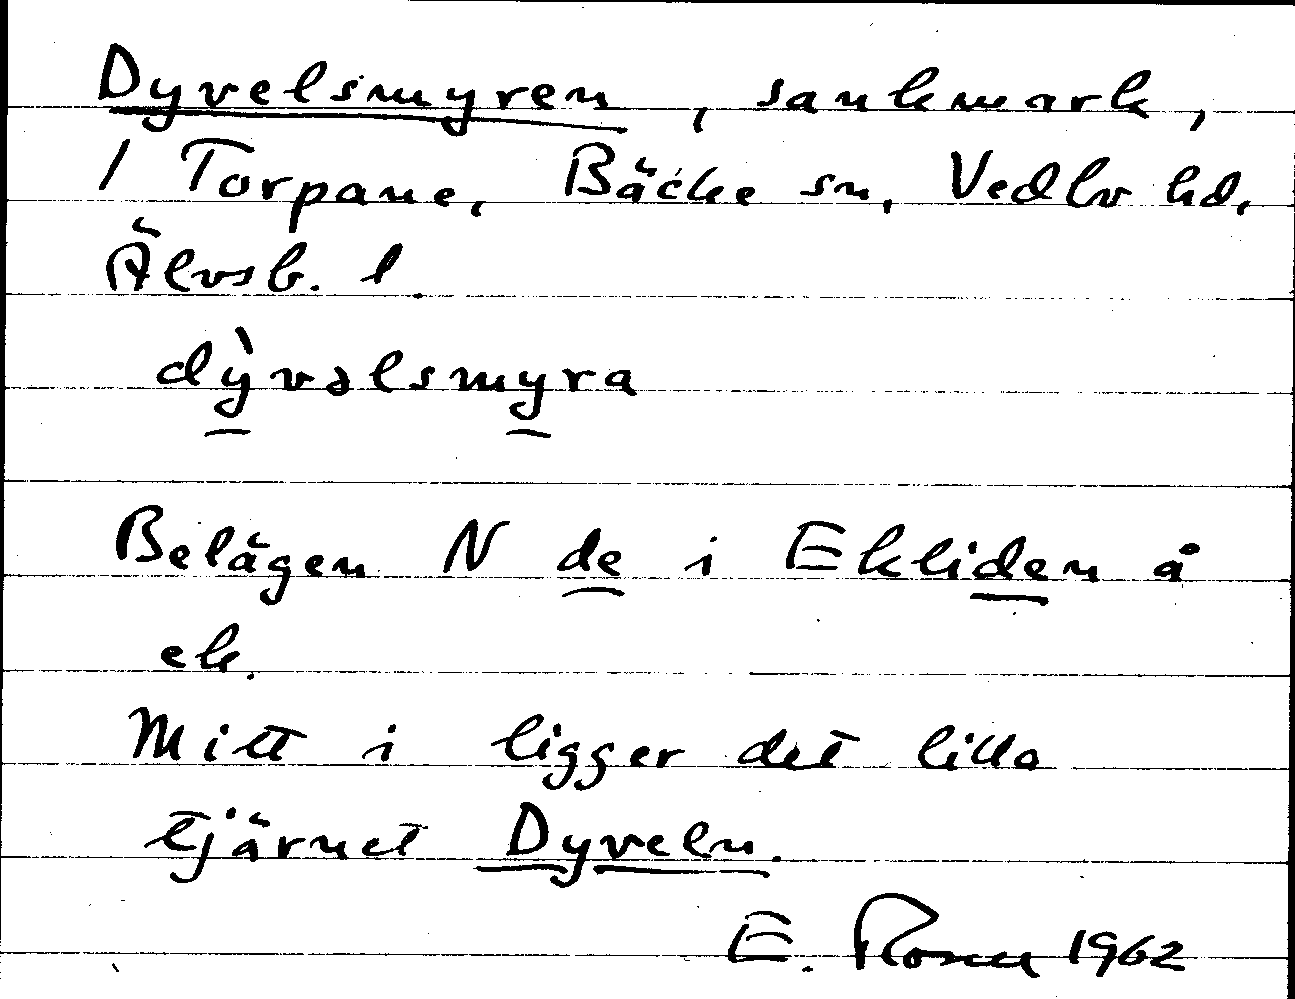 Dyvelsmyren, sankmark,
/ Torpane, Bäcke sn, Vedbo hd,
Älvsb. l
dỳvəlsmyra
Belägen N de i Ekliden å
ek.
Mitt i ligger det lilla
tjärnet Dyveln.
E. 1962